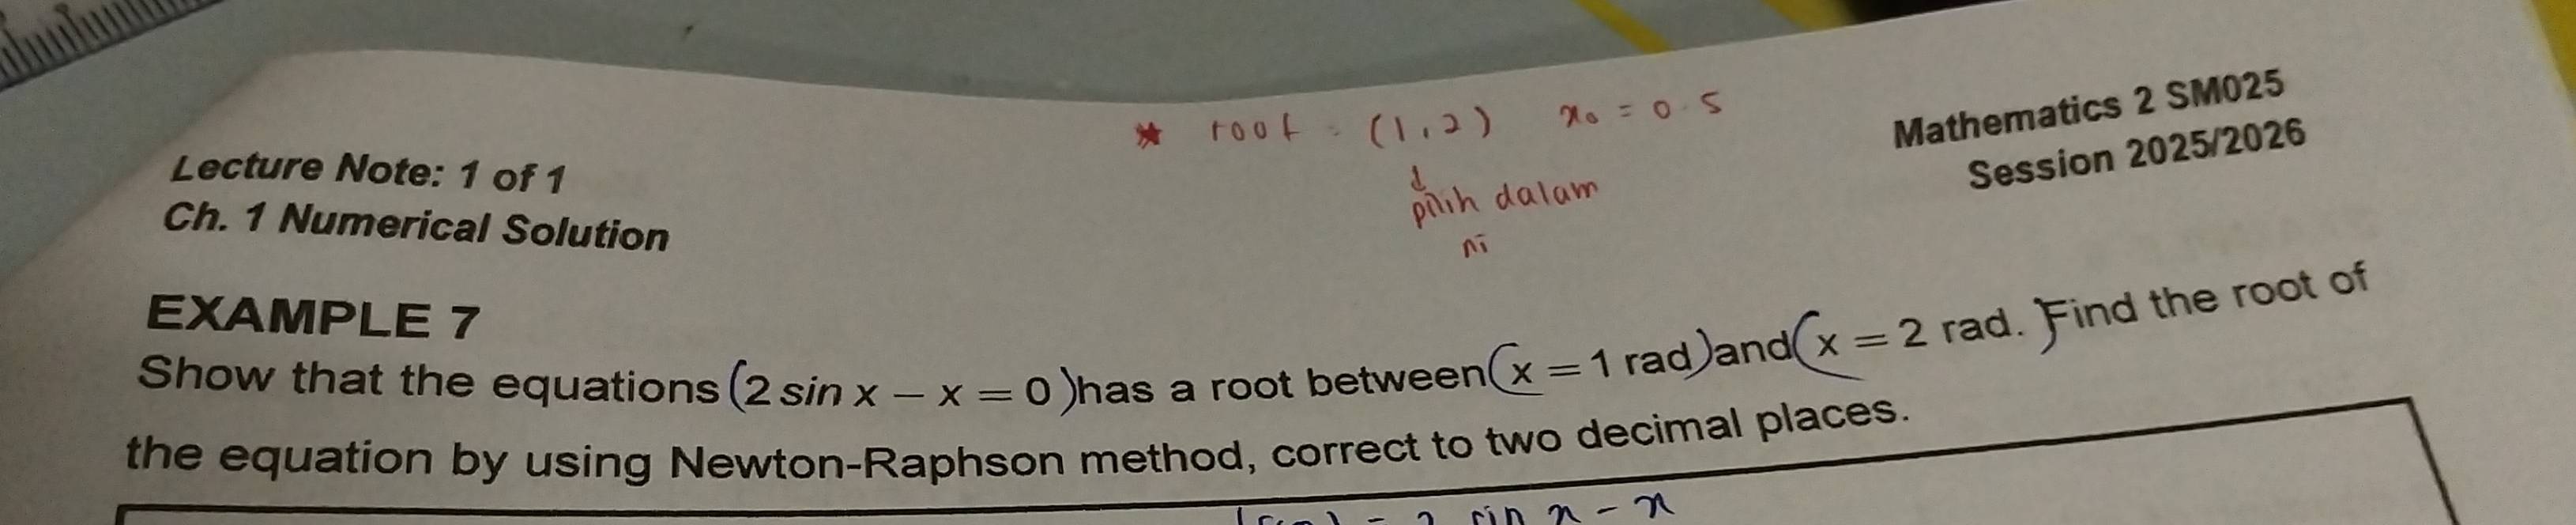 * root : (1,2) x₀ = 0.5
↓
pilih dalam
ni
Mathematics 2 SM025
Session 2025/2026
Lecture Note: 1 of 1
Ch. 1 Numerical Solution
EXAMPLE 7
Show that the equations (2 sin x − x = 0) has a root between (x = 1 rad) and (x = 2 rad.) Find the root of
the equation by using Newton-Raphson method, correct to two decimal places.
= 2 sin x - x